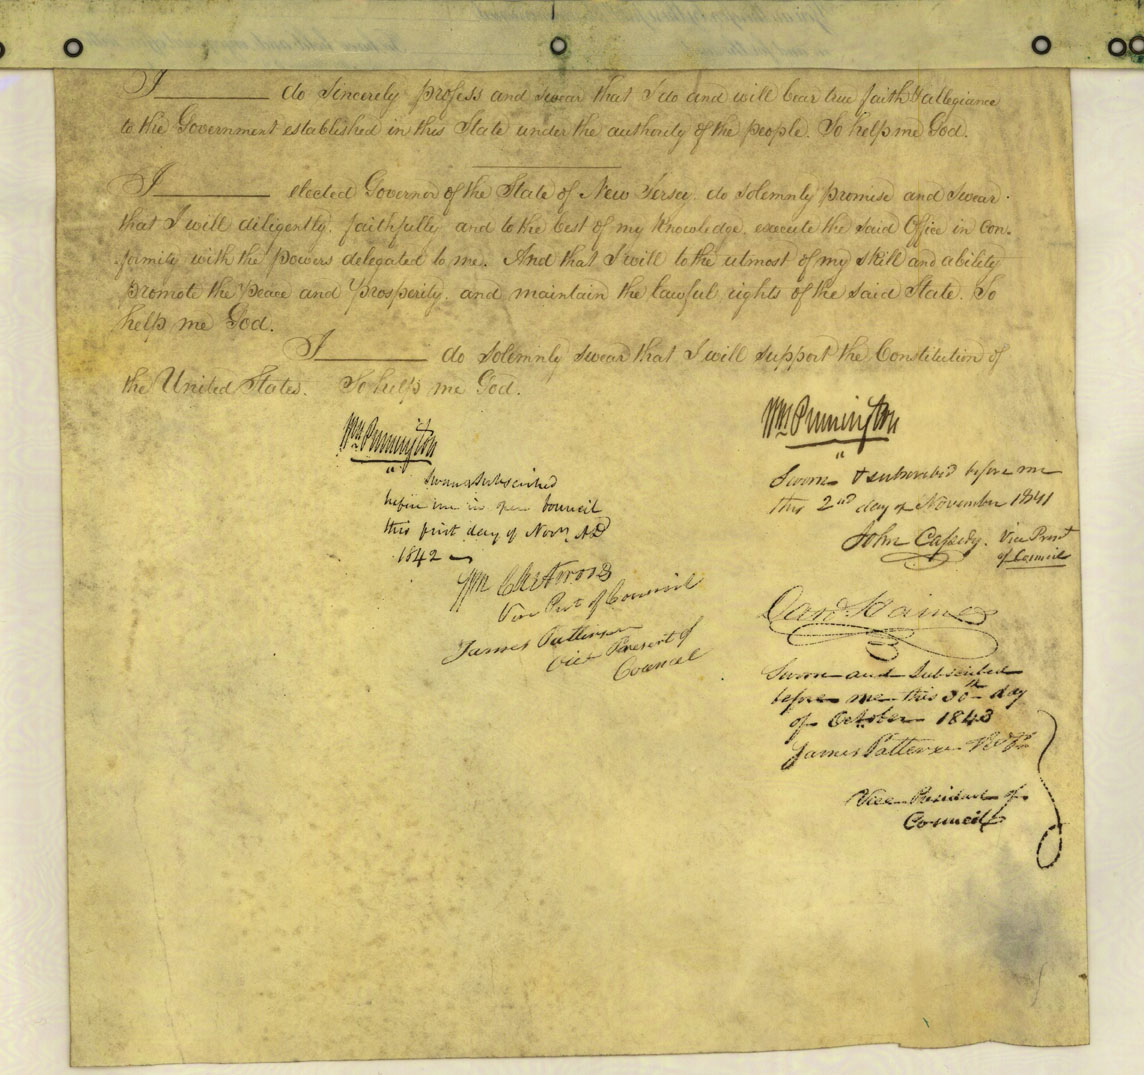 I ________ do Sincerely profess and swear that I do and will bear true faith & allegiance
to the Government established in this State under the authority of the people. So help me God.
I ________ elected Governor of the State of New Jersey. do Solemnly promise and Swear
that I will diligently, faithfully and to the best of my Knowledge, execute the said Office in Con-
formity with the powers delegated to me. And that I will to the utmost of my skill and ability
promote the Peace and Prosperity, and maintain the lawful rights of the said State. So
help me God.
I ________ do Solemnly swear that I will support the Constitution of
the United States. So help me God.
Wm Pennington
Sworn & Subscribed
before me in open Council
this first day of Novr AD
1842
Wm Chetwood
Vice Prest of Council
James Patterson
Vice President of
Council
Wm Pennington
Sworn & subscribed before me
this 2nd day of November 1841
John Cassedy. Vice Prest
of Council
Danl Haines
Sworn and Subscribed
before me this 30th day
of October 1843
James Patterson
Vice President of
Council